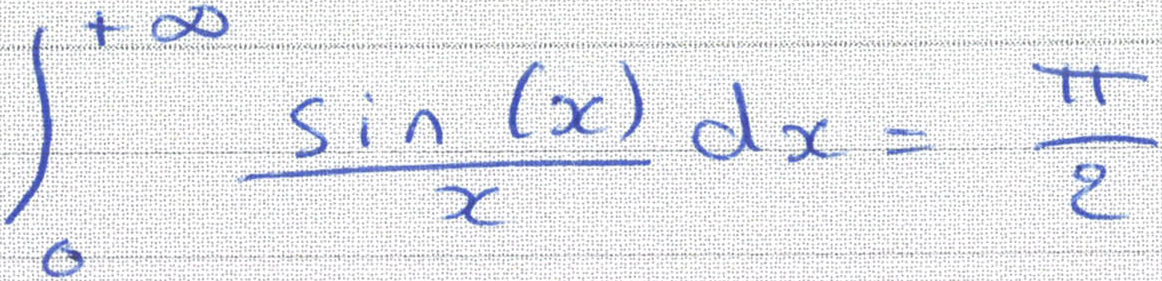 ∫₀^{+∞} sin(x)/x dx = π/2